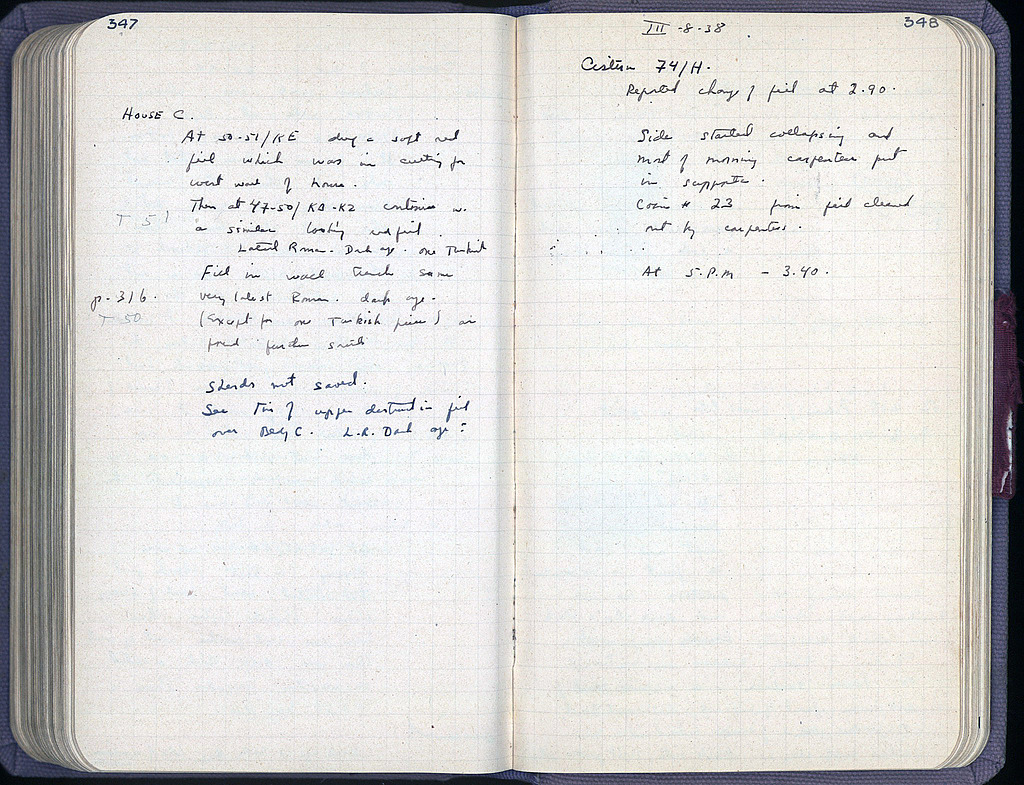 347
House C.
At 50-51/KE dug a soft red
fill which was in cutting for
west wall of house.
T 51
Then at 47-50/KA-KZ continue w.
a similar looking red fill.
Latest Roman. Dark age. one Turkish
Fill in wall trench same
p. 316.
very latest Roman. dark age.
T 50
(Except for one Turkish piece) as
found further south
Sherds not saved.
See Tin of upper destruction fill
over Bldg C. L.R. Dark age?
III -8-38
348
Cistern 74/H.
Reported change of fill at 2.90.
Side started collapsing and
most of morning carpenters put
in supports.
Coin # 23 from fill cleared
out by carpenters.
At 5.P.M - 3.40.